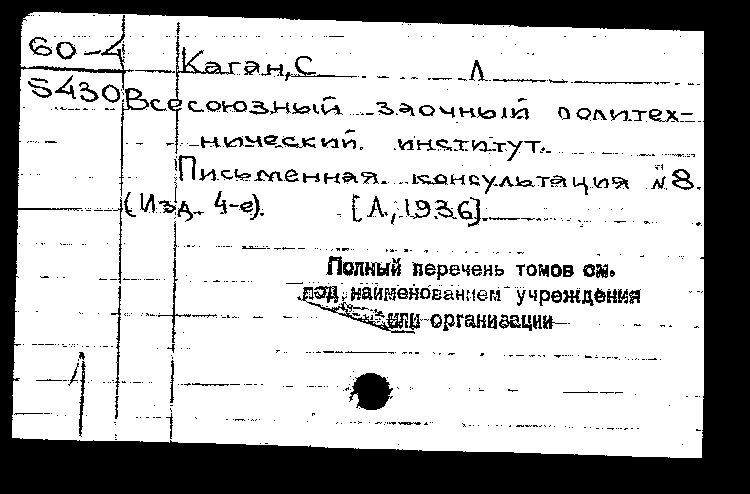 60-4
Каган, С Л
S430
Всесоюзный заочный политех-
нический институт.
Письменная консультация №8.
(Изд. 4-е). [Л, 1936].
Полный перечень томов см.
под наименованием учреждения
или организации
1